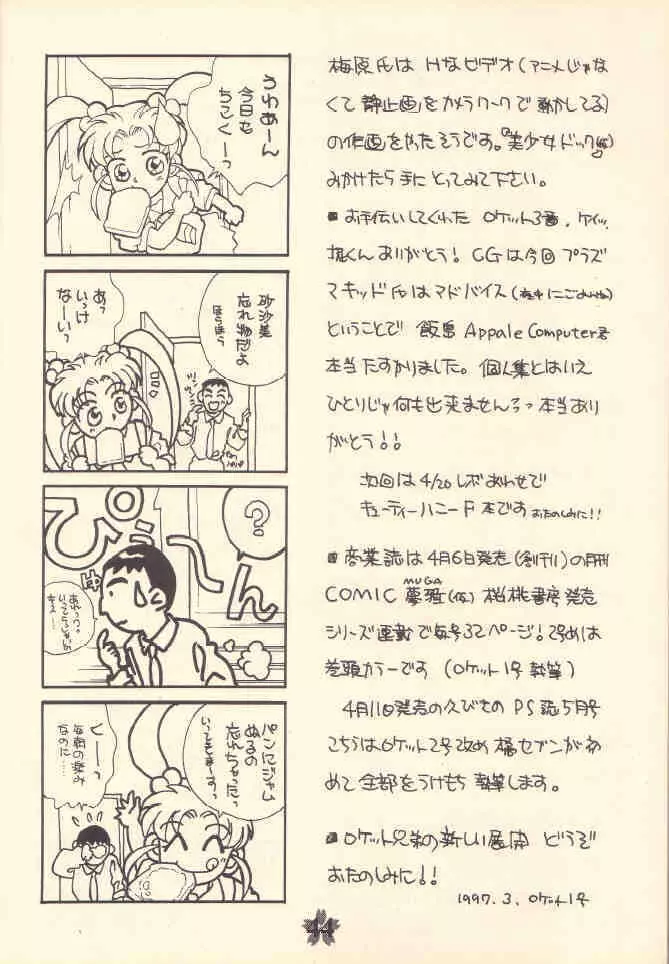 うわあーん
今日も
ちこくーっ
砂沙美
忘れ物だよ
ほらほら
あっ
いっけ
なーいっ
?
ぴゅーん
パンにジャム
ぬるの
忘れちゃったっ
いってきまーすっ
くーっ
毎朝の楽しみ
なのに……
梅原氏は Hなビデオ(アニメじゃな
くて静止画をカメラワークで動かしてる)
の作画をやったそうです。『美少女ドック
みかけたら手にとってみて下さい。
■お手伝いしてくれた ロケット3番、ケイッ、
堀くんありがとう! CGは今回プラズ
マキッド氏はアドバイス
ということで 飯島 Appale Computer君
本当たすかりました。個人集とはいえ
ひとりじゃ何も出来ませんねっ本当あり
がとう!!
次回は 4/20 レボあわせで
キューティーハニーF本です おたのしみに!!
■商業誌は4月6日発売(創刊!)の月刊
MUGA
COMIC 夢雅(仮) 桜桃書房発売
シリーズ連載で毎号32ページ! 2号めは
巻頭カラーです (ロケット1号執筆)
4月11日発売の久びさの PS誌5月号
こちらはロケット2号改め 橘セブンが初
めて全部をうけもち執筆します。
■ロケット兄弟の新しい展開 どうぞ
おたのしみに!!
1997.3. ロケット1号
44